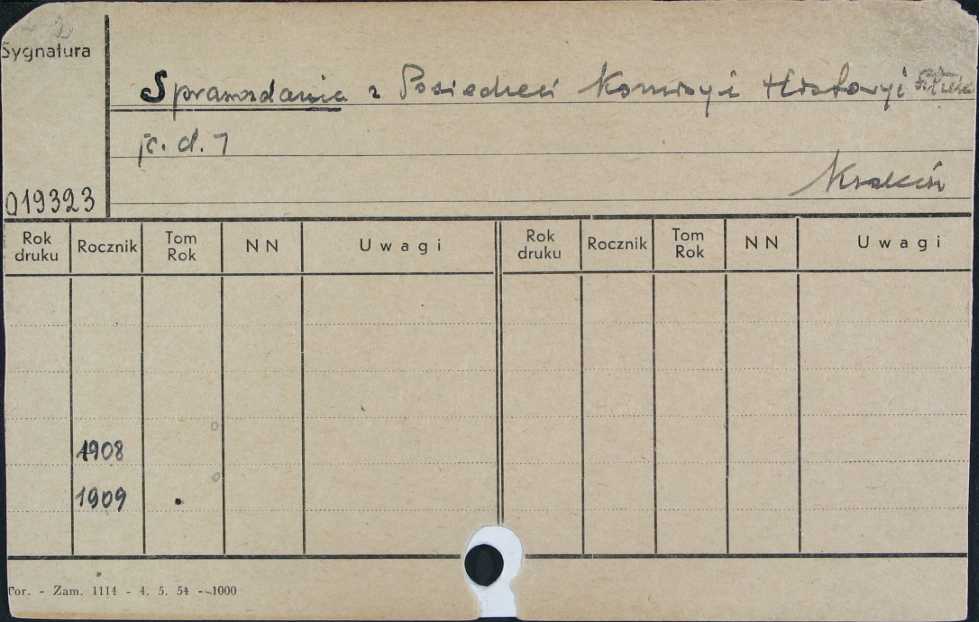 Sygnatura
Sprawozdanie z Posiedzeń Komisyi Historyi
[c. d.]
Kraków
019323
Rok druku Rocznik Tom Rok NN Uwagi Rok druku Rocznik Tom Rok NN Uwagi
1908
1909
Tor. - Zam. 1114 - 4. 5. 54 - 1000